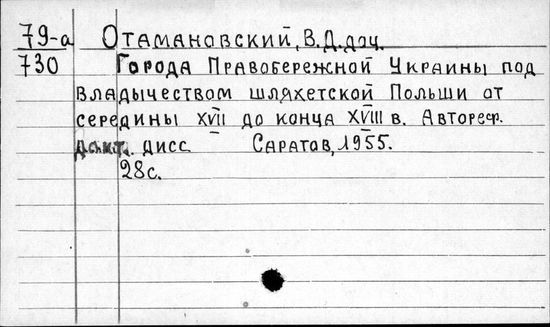 79-а Отамановский, В.Д. доц.
730 Города Правобережной Украины под
владычеством шляхетской Польши от
середины XVII до конца XVIII в. Автореф.
докт. дисс Саратов, 1955.
28с.